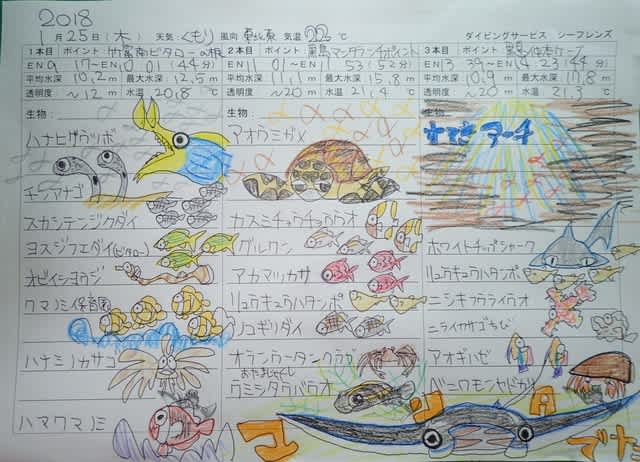 2018
1月25日(木) 天気:くもり 風向 東北東 気温 22 ℃ ダイビングサービス シーフレンズ
1本目 ポイント 竹富南ビタローの根
2本目 ポイント 黒島マンタランチポイント
3本目 ポイント 黒島
EN 9:17~EN 10:01(44分)
EN 11:01~ 53(52分)
EN 13:39~ 14:23(44分)
平均水深 10.2 m 最大水深 12.5 m
平均水深 11.1 m 最大水深 15.8 m
平均水深 10.9 m 最大水深 17.8 m
透明度 ~12 m 水温 20.8 ℃
透明度 ~20 m 水温 21.4 ℃
透明度 ~20 m 水温 21.3 ℃
生物:
ハナヒゲウツボ
チンアナゴ
スカシテンジクダイ
ヨスジフエダイ(ビタロー)
オビイシヨウジ
クマノミ保育園
ハナミノカサゴ
ハマクマノミ
生物:
アオウミガメ
カスミチョウチョウウオ
グルクン
アカマツカサ
リュウキュウハタンポ
ノコギリダイ
オランウータンクラブ
ウミシダウバウオ
生物:
アーチ
ホワイトチップシャーク
リュウキュウハタンポ
ニシキフウライウオ
ニライカサゴちび
アオギハゼ
ベニワモンヤドカリ
マンタ